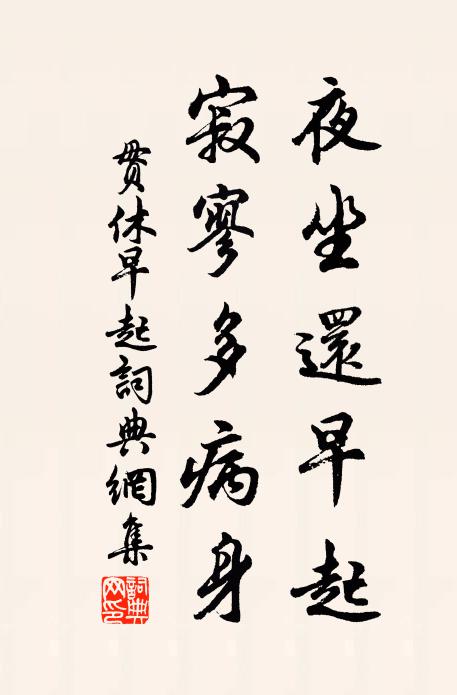 夜坐還早起
寂寥多病身
貫休早起詞典網集
詞典
网印